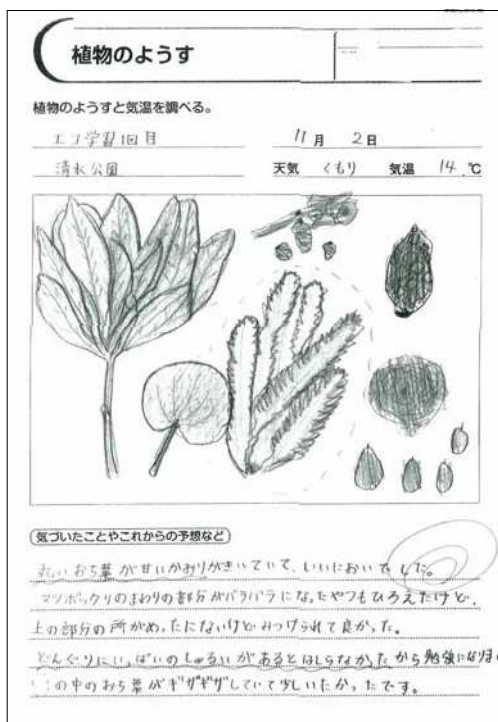 植物のようす
植物のようすと気温を調べる。
エコ学習1回目
11月 2日
清水公園
天気 くもり 気温 14.℃
気づいたことやこれからの予想など
丸いおち葉が甘いかおりがきいていて、いいにおいでした。
マツボックリのまわりの部分がバラバラになったやつもひろえたけど、
上の部分の所がめったにないけどみつけられて良かった。
どんぐりにいっぱいのしゅるいがあるとはしらなかったから勉強になりま
の中のおち葉がギザギザしていて少しいたかったです。